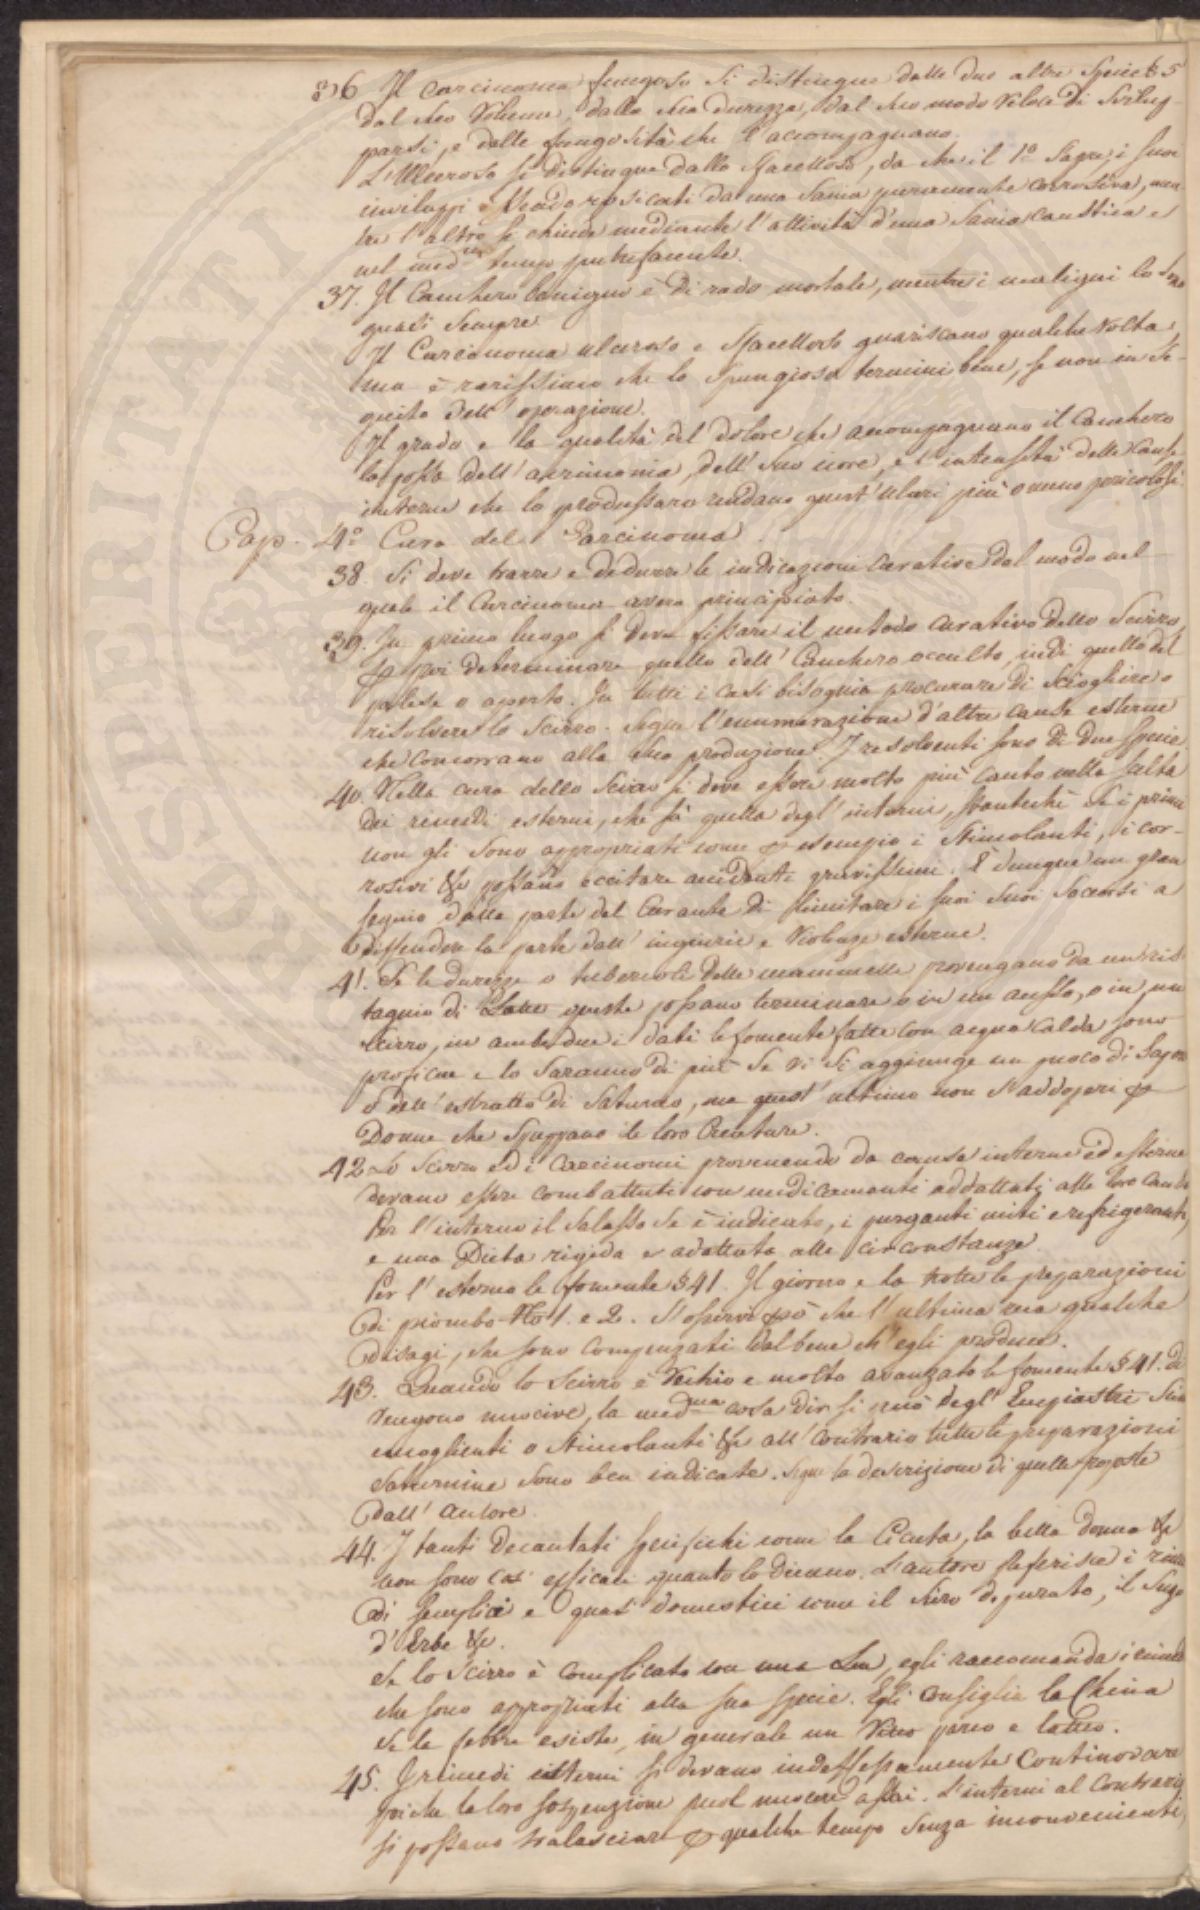 36 Il carcinoma fungoso si distingue dalle due altre Specie § 5
dal suo Volume, dalla sua durezza, dal suo modo veloce di svilup-
parsi, e dalle fungosità che l'accompagnano.
L'Ulceroso si distingue dallo Sfacelloso, da che il 1º sapre i suoi
inviluppi essendo rosicati da una Sania puramente corrosiva, men
tre l'altro si chiude mediante l'attività d'una Sania caustica e
nel medmo tempo putrefacente.
37. Il Canchero benigno è di rado mortale, mentre i maligni lo sono
quasi sempre
Il Carcinoma ulceroso e Sfacelloso guariscano qualche volta,
ma è rarissimo che lo Spungioso termini bene, se non in se-
guito dell'operazione.
Il grado e la qualità del dolore che accompagnano il Canchero
la possa dell'acrimonia, dell'suo icore, e l'intensità delle cause
interne che lo produssero rendano quest'ulceri più o meno pericolosi.
Cap. 4º Cura del Carcinoma.
38. Si deve trarre e dedurre le indicazioni curative dal modo nel
quale il Carcinoma avera principiato.
39. In primo luogo si deve fissare il metodo curativo dello Scirro,
p poi determinare quello dell'Canchero occulto, indi quello del
palese o aperto. In tutti i casi bisognia procurare di sciogliere o
risolvere lo Scirro. Segue l'enumerazione d'altre cause esterne
che concorrano alla sua produzione. I resolventi sono di due specie.
40. Nella cura dello Scirro si deve essere molto più cauto nella scelta
dei remedi esterni, che in quella degl'interni, stantechè se i primi
non gli sono appropriati come p esempio i Stimolanti, i cor-
rosivi &c possano eccitare accidenti gravissimi. È dunque un gran
segnio dalla parte del Curante di limitare i suoi suoi Soccorsi a
diffendere la parte dall'ingiurie e Violenze esterne.
41. Se le durezze o tubercoli delle mammelle provengano da un ris-
tagnio di Latte queste possano terminare o in un ascesso, o in un
Scirro, in ambe due i dati le fomente fatte con acqua calda sono
proficue e lo saranno di più se vi si aggiunge un puoco di Sapone
o dell'estratto di Saturno, ma quest'ultimo non s'addoperi p
Donne che spuppano le loro Creature.
42 Lo Scirro ed i Carcinomi provenendo da cause interne ed esterne
devano essere combattuti con medicamenti addattati alle loro cause
Per l'interno il Salasso se è indicato, i purganti miti e refrigeranti,
e una Dieta rigida e adattata alle circonstanze.
Per l'esterno le fomente § 41. Il giorno e la notte le preparazioni
di piombo No 1. e 2. S'osservi però che l'ultima reca qualche
disagi, che sono compenzati dal bene ch'egli produce.
43. Quando lo Scirro è vechio e molto avanzato le fomente § 41. di
vengono nuocive, la medma cosa dir si può degl'Empiastri sian
emoglienti o stimolanti &c all'contrario tutte le preparazioni
Saturnine sono ben indicate. Segue la descrizione di quelle proposte
dall'Autore.
44. I tanti decantati specifichi come la Cicuta, la bella donna &c
non sono così efficaci quanto lo dicano. L'autore preferisce i rimedi
di semplici e quasi domestici come il siero depurato, il Sugo
d'Erbe &c.
Se lo Scirro è complicato con una Lue, egli raccomanda i rimedi
che sono appropriati alla sua specie. Egli consiglia la China
se la febbre esiste, in generale un Vitto parco e latteo.
45. I rimedi esterni si devano indefessamente continovare
poiche la loro sospenzione puol nuocere assai. L'interni al contrario
si possano tralasciare p qualche tempo senza inconvenienti,